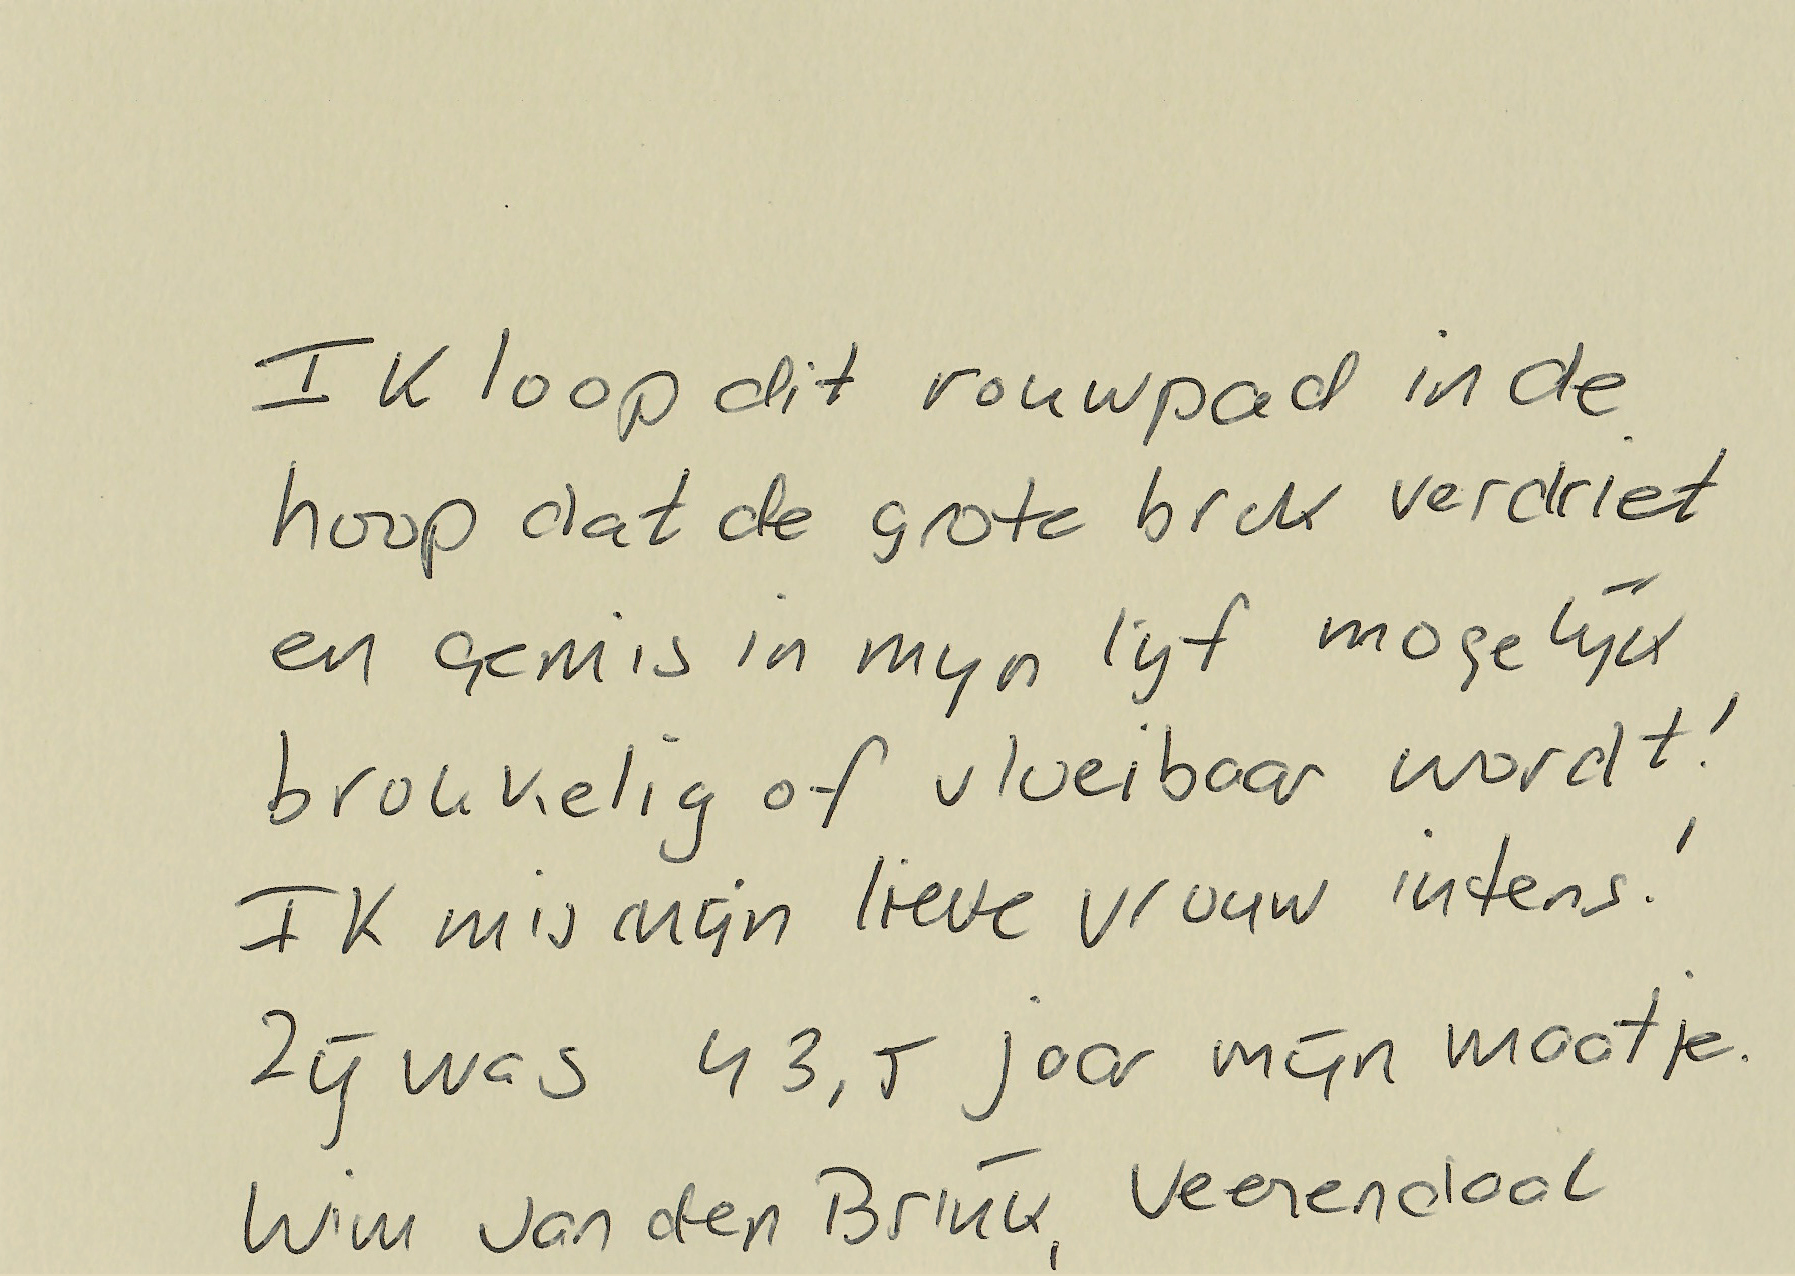 Ik loop dit rouwpad in de
hoop dat de grote brok verdriet
en gemis in mijn lijf mogelijk
brokkelig of vloeibaar wordt!
Ik mis mijn lieve vrouw intens!
Zij was 43,5 jaar mijn maatje.
Wim van den Brink, Veenendaal